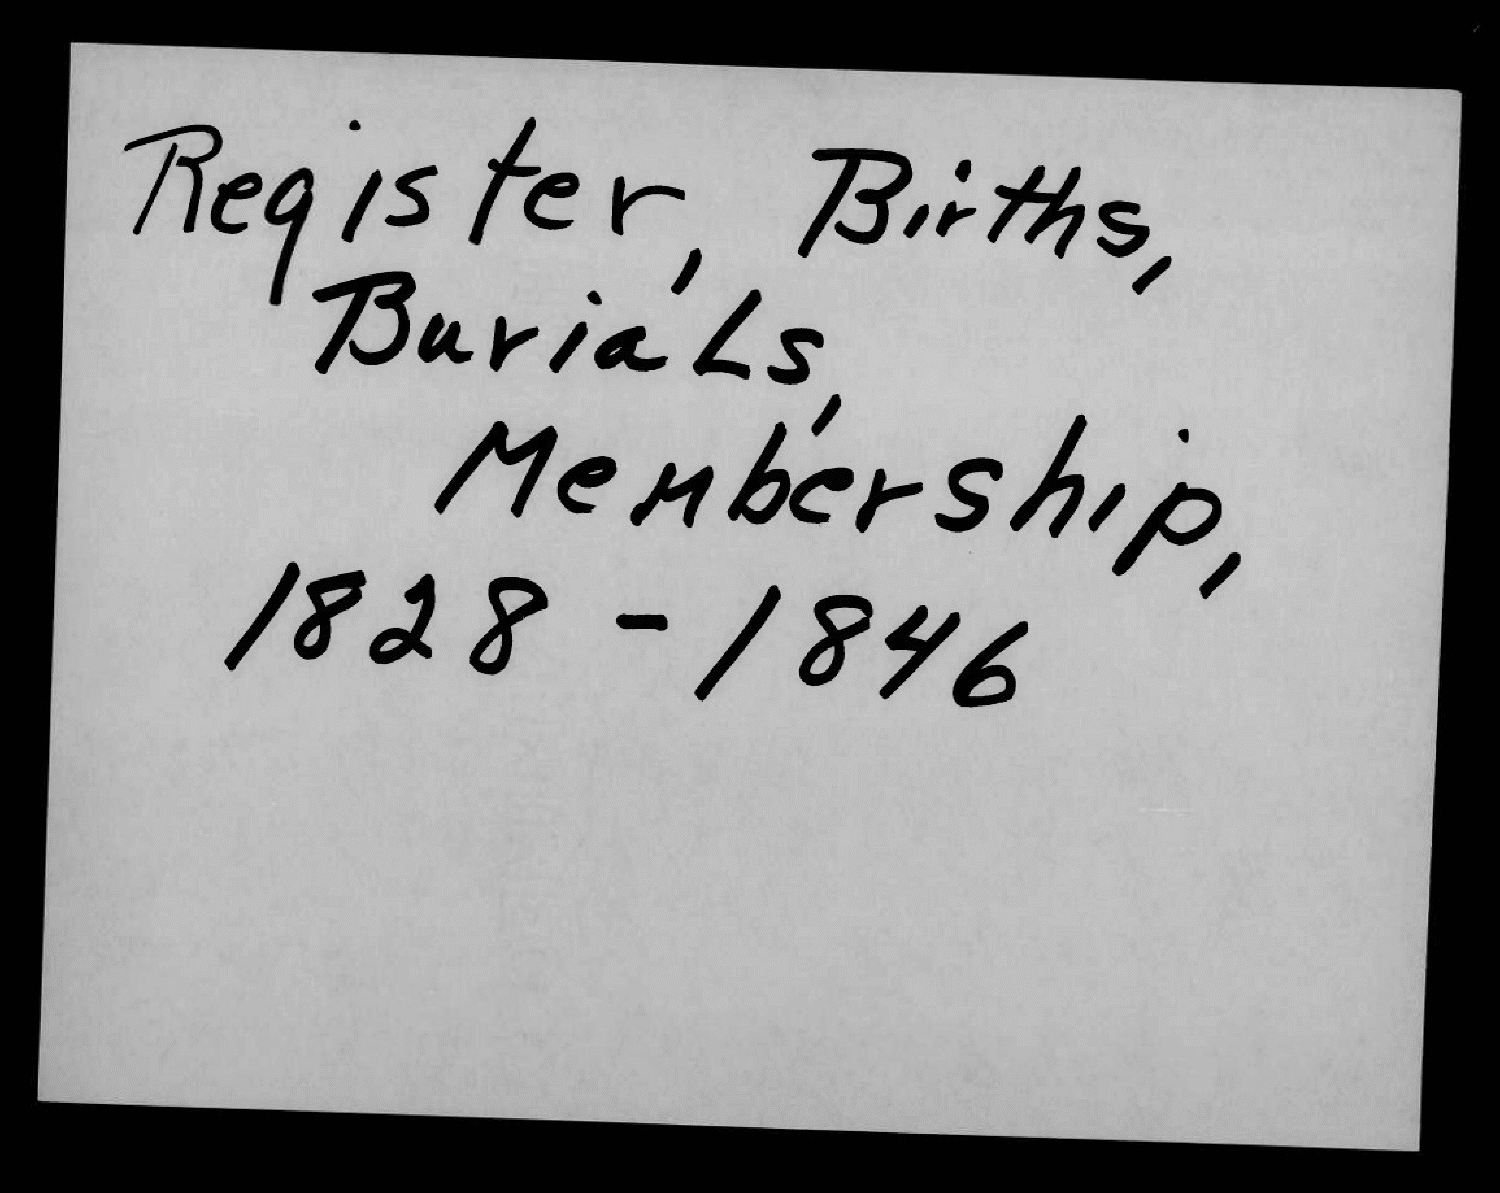 Register, Births,
Burials,
Membership,
1828 - 1846